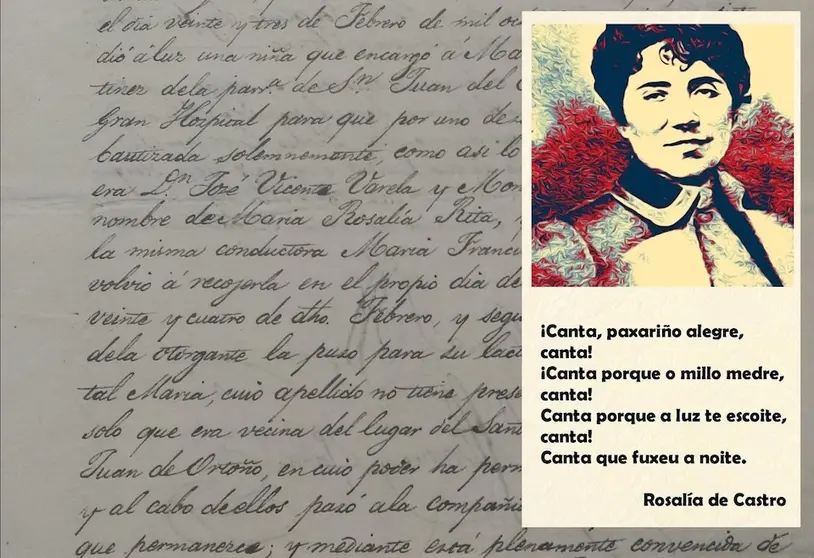 el dia veinte y tres de Febrero de mil
dió á luz una niña que encargó á
tinez dela parr.ª de S.n Juan del
Gran Hospital para que por uno de
bautizada solemnemente, como asi lo
era D.n José Vicente Varela y
nombre de Maria Rosalia Rita,
la misma conductora Maria
volvió á recojerla en el propio dia
veinte y cuatro de dho. Febrero, y
dela otorgante la puso para su
tal Maria, cuio apellido no tiene
solo que era vecina del lugar del
Juan de Ortoño, en cuio poder ha
y al cabo de ellos pasó ala
que permanece; y mediante está plenamente convencida de
¡Canta, paxariño alegre,
canta!
¡Canta porque o millo medre,
canta!
Canta porque a luz te escoite,
canta!
Canta que fuxeu a noite.
Rosalía de Castro